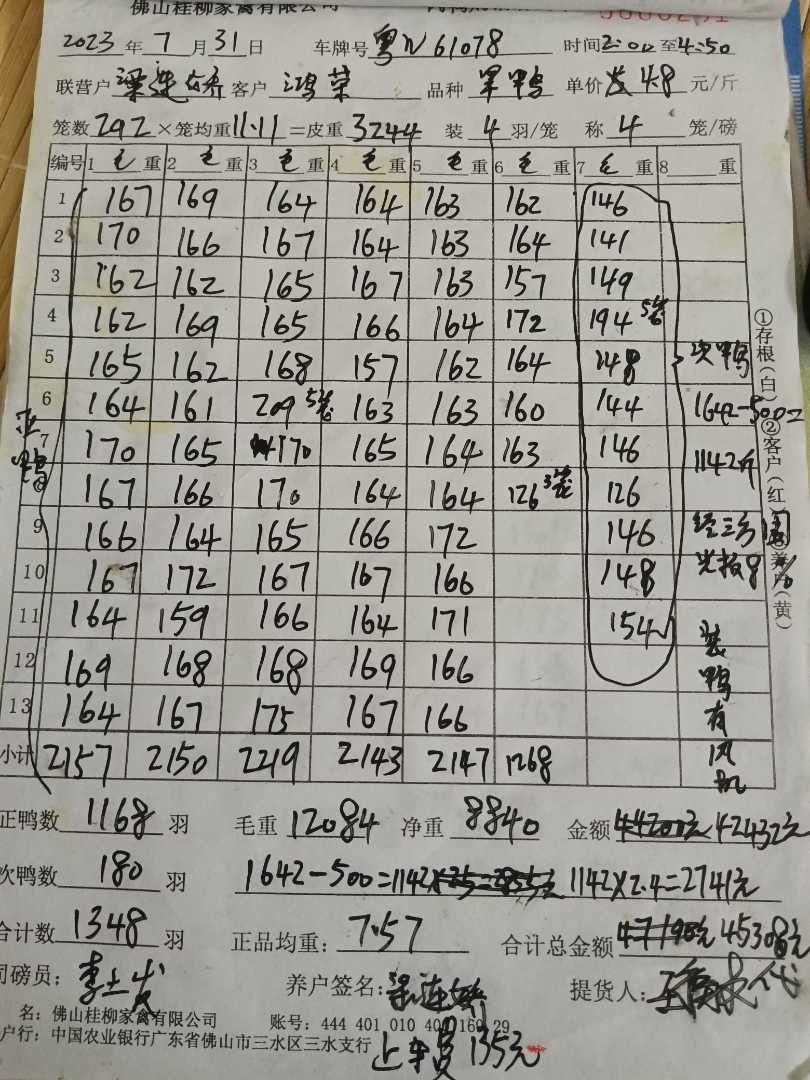 佛山桂柳家禽有限公司
2023 年 7 月 31 日 车牌号 粤W 61078 时间 2:00 至 4:50
联营户 梁连娇 客户 鸿荣 品种 单价 4.8 元/斤
笼数 292 ×笼均重 11.11 =皮重 3244 装 4 羽/笼 称 4 笼/磅
编号 1 毛 重 2 毛 重 3 毛 重 4 毛 重 5 毛 重 6 毛 重 7 毛 重 8 重
1 167 169 164 164 163 162 146
2 170 166 167 164 163 164 141
3 162 162 165 167 163 157 149
4 162 169 165 166 164 172 194 5笼
5 165 162 168 157 162 164 148 次鸭
6 164 161 209 5笼 163 163 160 144 1642-500=
7 170 165 170 165 164 163 146 1142斤
8 167 166 170 164 164 126 3笼 126
9 166 164 165 166 172 146 经三方
10 167 172 167 167 166 148 8%
11 164 159 166 164 171 154 装
12 169 168 168 169 166 鸭
13 164 167 175 167 166 有
小计 2157 2150 2219 2143 2147 1268 风机
正鸭
①存根(白)②客户(红)③养户(黄)
正鸭数 1168 羽 毛重 12084 净重 8840 金额 44200元 42432元
次鸭数 180 羽 1642-500=1142 1142×2.4=2741元
合计数 1348 羽 正品均重: 7.57 合计总金额 45308元
司磅员: 养户签名: 梁连娇 提货人:
名: 佛山桂柳家禽有限公司 账号: 444 401 010 400 169 29
户行: 中国农业银行广东省佛山市三水区三水支行
上车费 135元